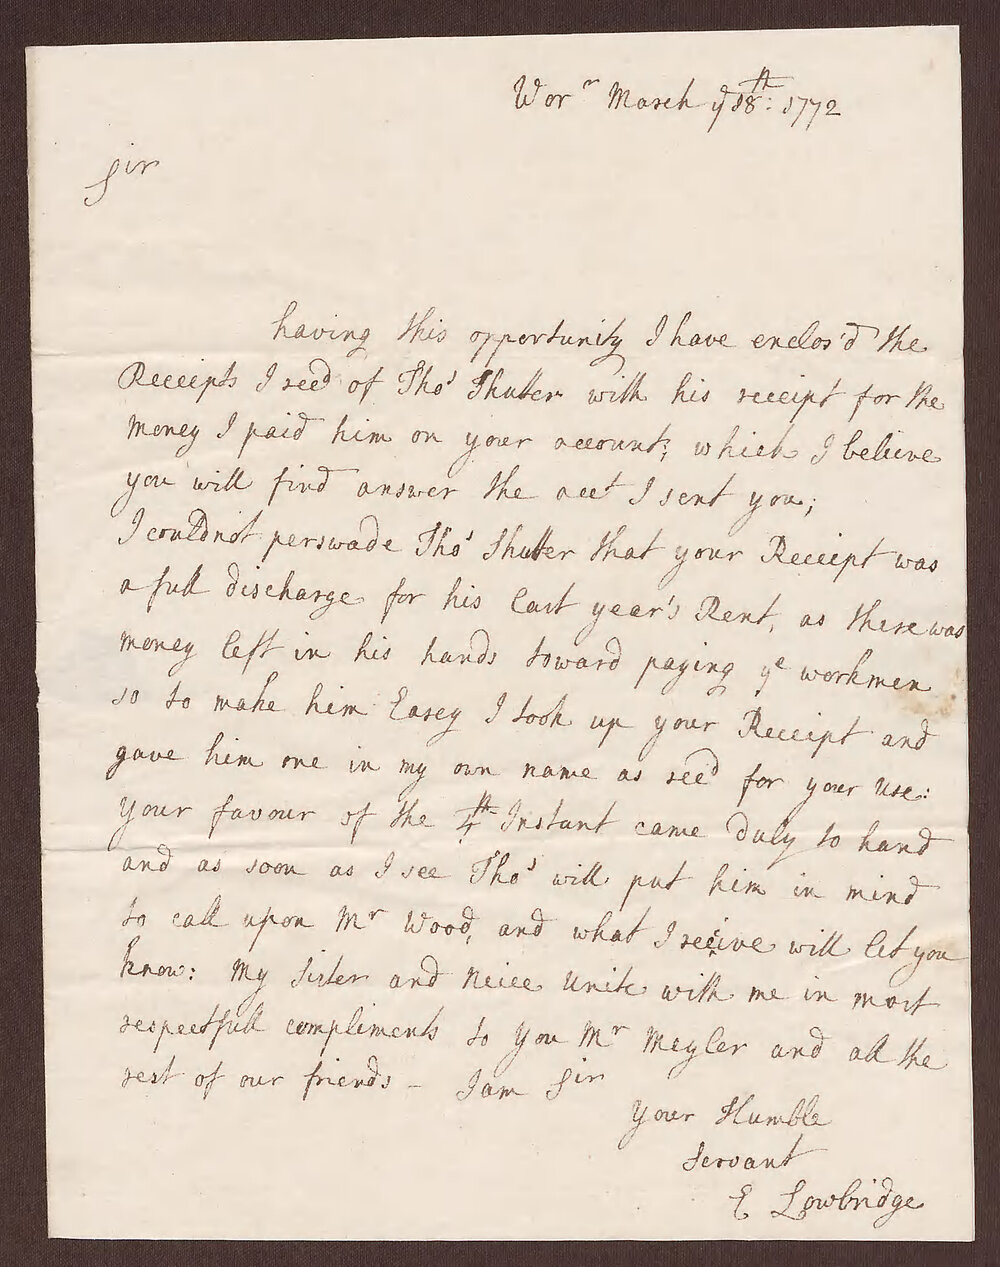 Wor.r March ye 18th: 1772
Sir
having this opportunity I have enclos'd the
Receipts I recd of Thos Shutter with his receipt for the
money I paid him on your account; which I believe
you will find answer the acct I sent you;
I couldnot perswade Thos Shutter that your Receipt was
a full discharge for his last year's Rent, as there was
money left in his hands toward paying ye workmen
so to make him Easey I took up your Receipt and
gave him one in my own name as recd for your use:
your favour of the 4th Instant came duly to hand
and as soon as I see Thos will put him in mind
to call upon Mr Wood, and what I receive will let you
know: My Sister and Neice Unite with me in most
respectfull compliments to you Mr Meyler and all the
rest of our friends - I am Sir
your Humble
Servant
E Lowbridge